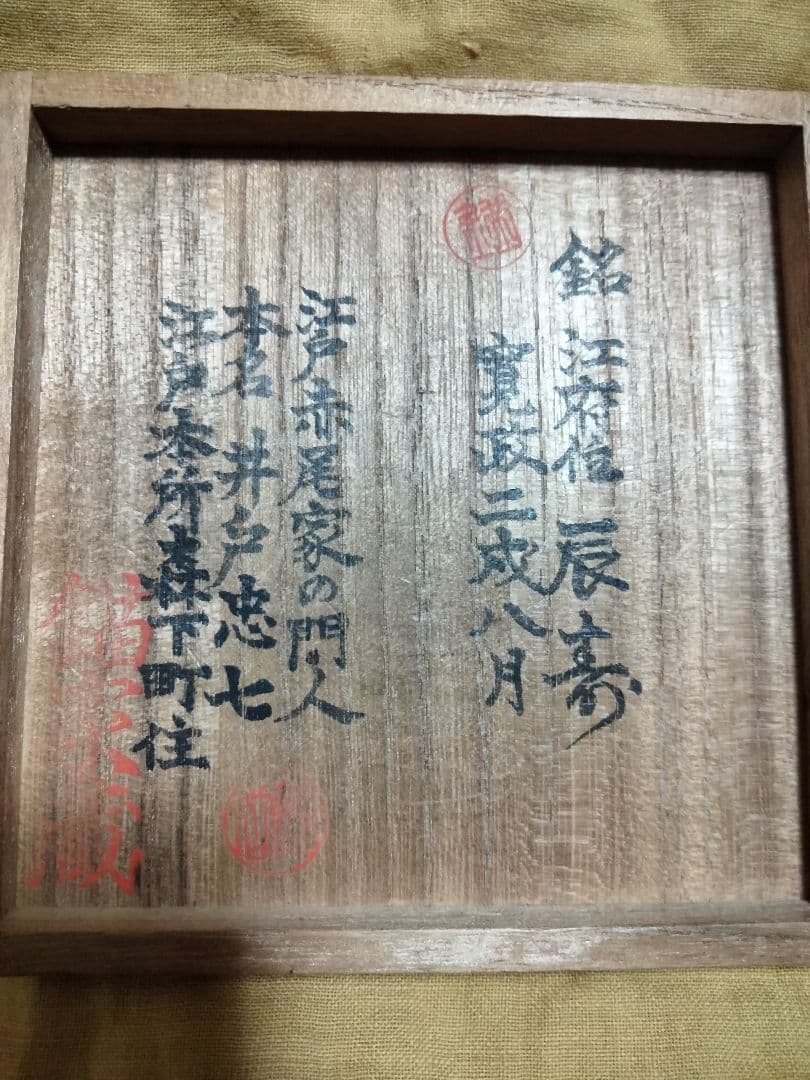 銘 江府住 辰壽
寛政二戌八月
江戸赤尾家の門人
本名 井戸忠七
江戸本所森下町住